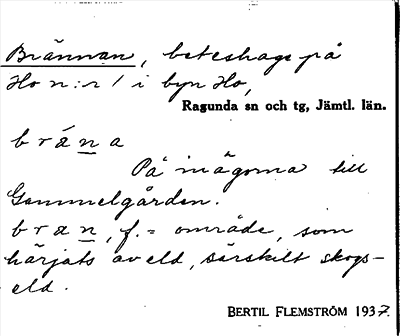 Brännan, beteshage på
Ho n:r 1 i byn Ho,
Ragunda sn och tg, Jämtl. län.
bräna
På inägorna till
Gammelgården.
bran, f. = område, som
härjats av eld, särskilt skogs-
eld.
BERTIL FLEMSTRÖM 1937.